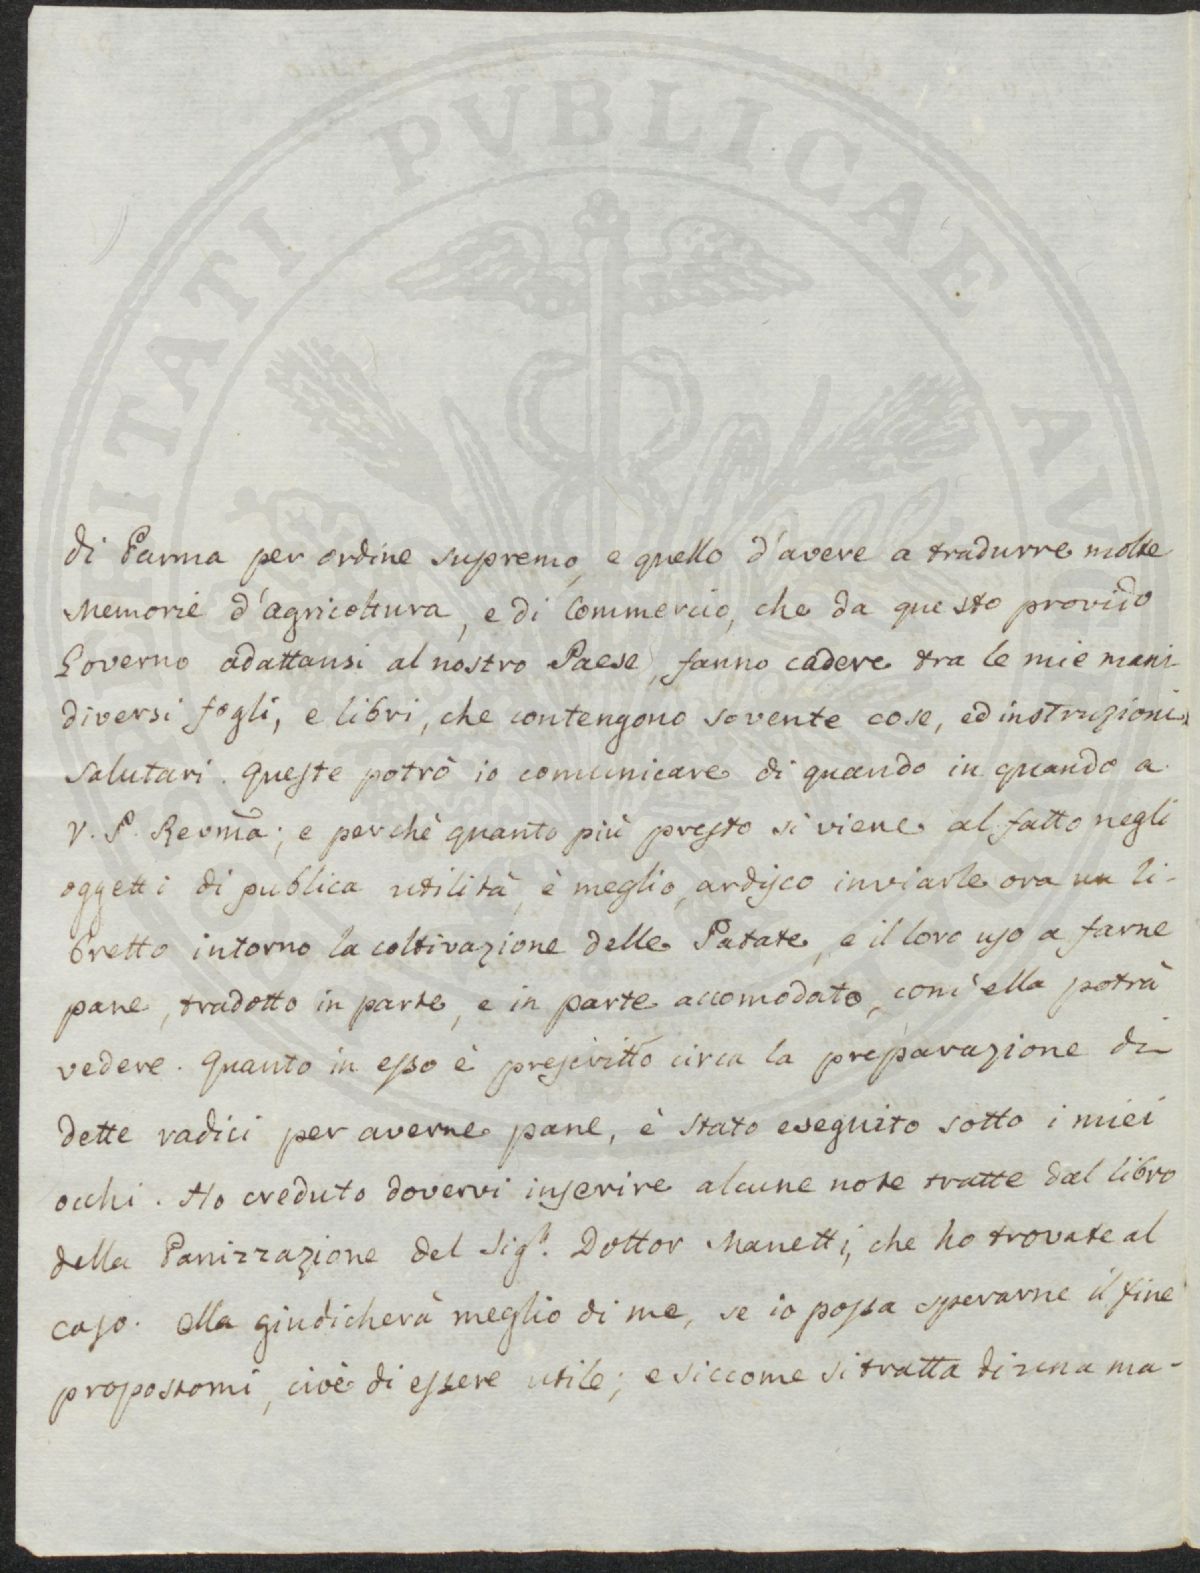 di Parma per ordine supremo, e quello d'avere a tradurre molte
Memorie d'agricoltura, e di Commercio, che da questo provido
Governo adattansi al nostro Paese, fanno cadere tra le mie mani
diversi fogli, e libri, che contengono sovente cose, ed instruzioni
salutari. Queste potrò io comunicare di quando in quando a
V. P. Revma; e perchè quanto più presto si viene al fatto negli
oggetti di publica utilità, è meglio, ardisco inviarle ora un li-
bretto intorno la coltivazione delle Patate, e il loro uso a farne
pane, tradotto in parte, e in parte accomodato, com'ella potrà
vedere. Quanto in esso è prescritto circa la preparazione di
dette radici per averne pane, è stato eseguito sotto i miei
occhi. Ho creduto dovervi inserire alcune note tratte dal libro
della Panizzazione del Sigr. Dottor Manetti, che ho trovate al
caso. Ella giudicherà meglio di me, se io possa sperarne il fine
propostomi, cioè di essere utile; e siccome si tratta di una ma-
ITATI PVBLICAE AV